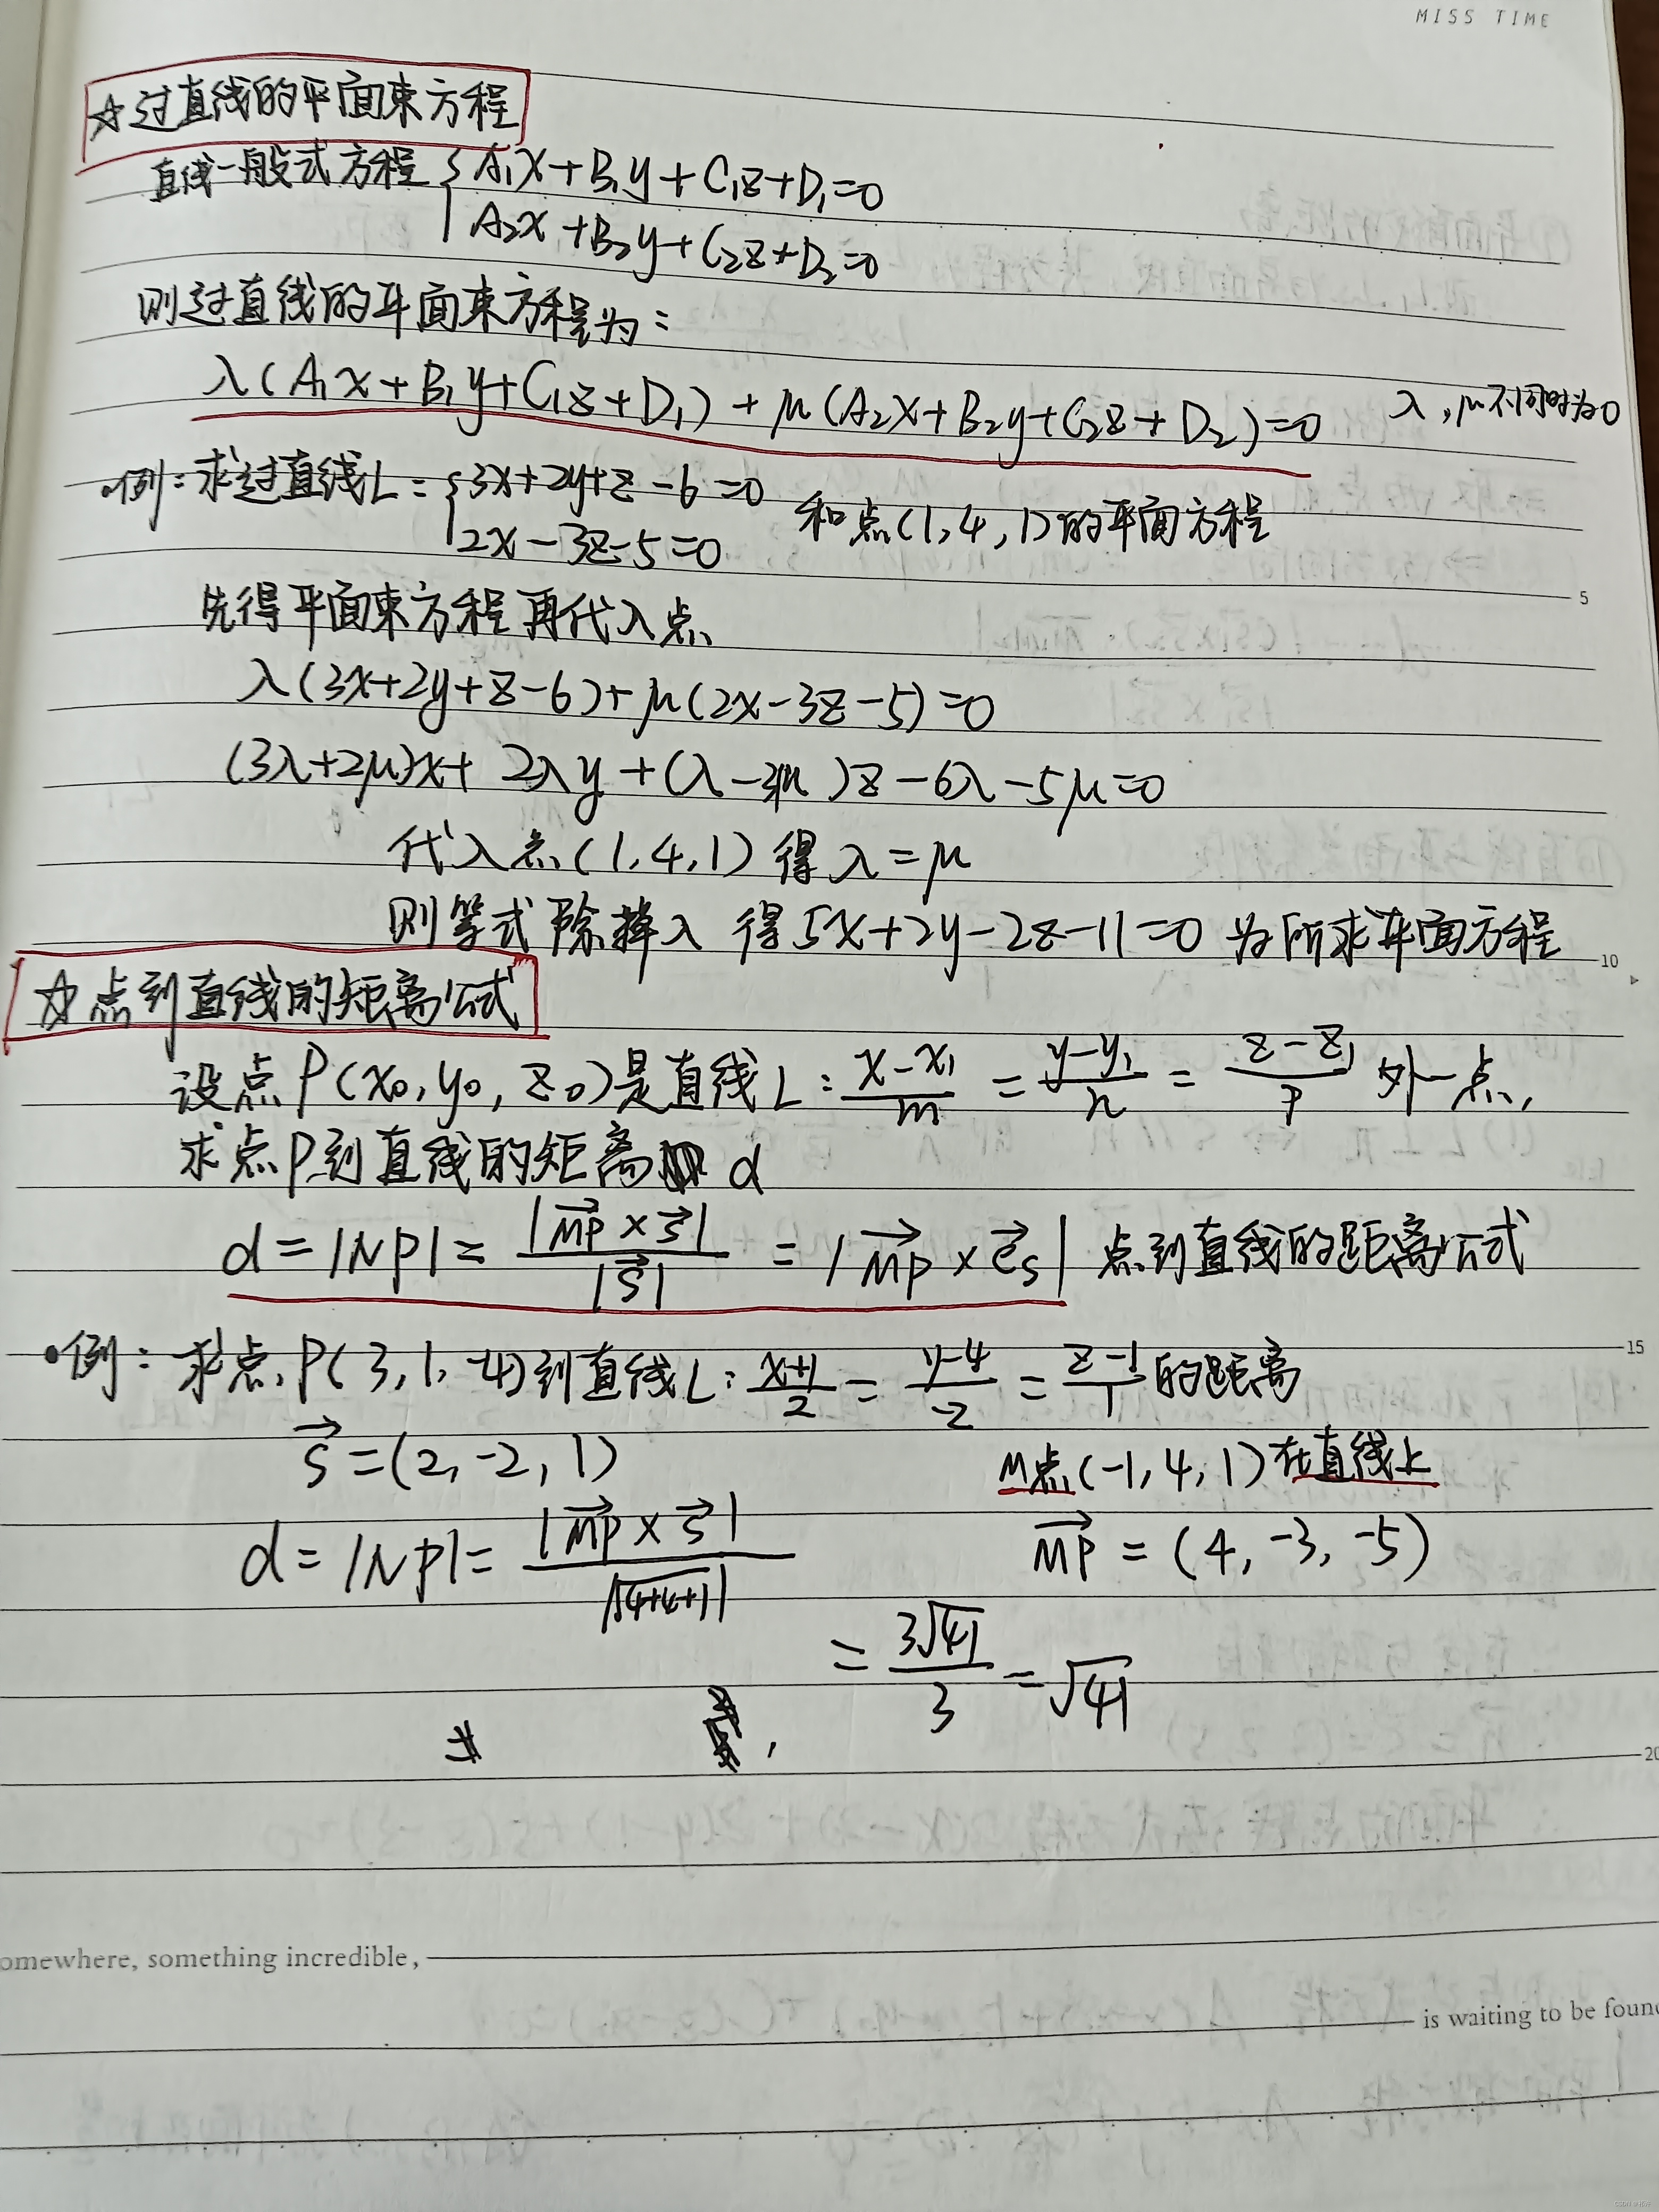 MISS TIME
☆过直线的平面束方程
直线一般式方程 { A₁x+B₁y+C₁z+D₁=0
A₂x+B₂y+C₂z+D₂=0
则过直线的平面束方程为:
λ(A₁x+B₁y+C₁z+D₁)+μ(A₂x+B₂y+C₂z+D₂)=0 λ,μ不同时为0
·例:求过直线L={3x+2y+z-6=0 和点(1,4,1)的平面方程
2x-3z-5=0
先得平面束方程再代入点
5
λ(3x+2y+z-6)+μ(2x-3z-5)=0
(3λ+2μ)x+2λy+(λ-3μ)z-6λ-5μ=0
代入点(1,4,1)得λ=μ
则等式除掉λ 得5x+2y-2z-11=0 为所求平面方程
10
☆点到直线的距离公式
设点P(x₀,y₀,z₀)是直线L:(x-x₁)/m=(y-y₁)/n=(z-z₁)/p 外一点,
求点P到直线的距离 d
d=|NP|=|MP⃗×s⃗|/|s⃗|=|MP⃗×e⃗s| 点到直线的距离公式
·例:求点P(3,1,-4)到直线L:(x+1)/2=(y-4)/-2=(z-1)/1的距离
15
s⃗=(2,-2,1) M点(-1,4,1)在直线上
d=|NP|=|MP⃗×s⃗|/|√4+4+1| MP⃗=(4,-3,-5)
=3√41/3=√41
20
omewhere, something incredible,
is waiting to be foun